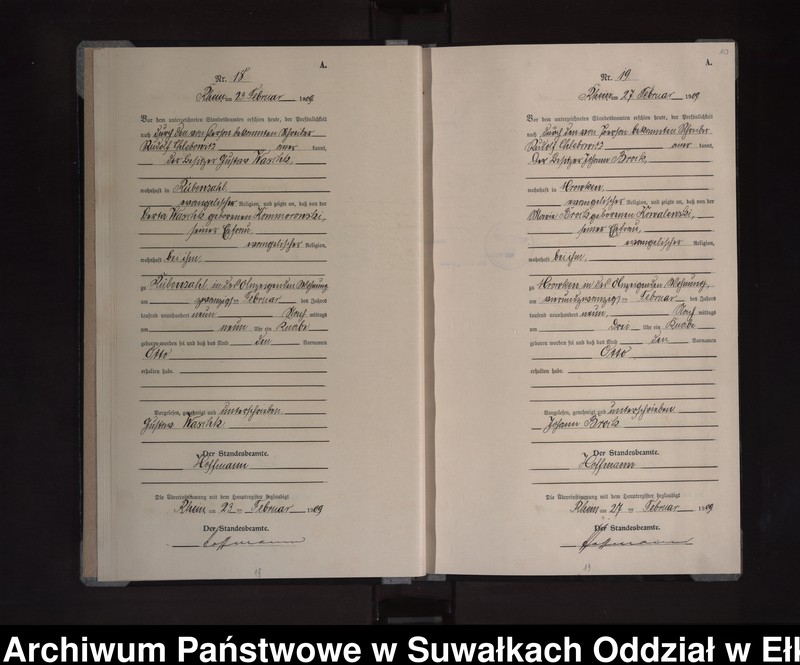 A.
Nr. 18
Rhein am 23 Februar 1909
Vor dem unterzeichneten Standesbeamten erschien heute, der Persönlichkeit
nach durch den von Person bekannten Schreiber
Rudolf Chlebowitz anerkannt,
der Besitzer Gustav
wohnhaft in Rübenzahl
evangelischer Religion, und zeigte an, daß von der
geborenen Kommorowski,
seiner Ehefrau
evangelischer Religion,
wohnhaft bei ihm,
zu Rübenzahl in der Wohnung
am zwanzigsten Februar des Jahres
tausend neunhundert neun Nachmittags
um neun Uhr ein Knabe
geboren worden sei und daß das Kind den Vornamen
Otto
erhalten habe.
Vorgelesen, genehmigt und unterschrieben
Gustav
Der Standesbeamte.
Hoffmann
Die Übereinstimmung mit dem Hauptregister beglaubigt
Rhein am 23 ten Februar 1909
Der Standesbeamte.
Hoffmann
18
A.
Nr. 19
Rhein am 27 Februar 1909
Vor dem unterzeichneten Standesbeamten erschien heute, der Persönlichkeit
nach durch den von Person bekannten Schreiber
Rudolf Chlebowitz anerkannt,
der Besitzer Johann
wohnhaft in
evangelischer Religion, und zeigte an, daß von der
Marie geborenen Kowalewski,
seiner Ehefrau,
evangelischer Religion,
wohnhaft bei ihm,
zu in der Wohnung,
am Februar des Jahres
tausend neunhundert neun, Nachmittags
um drei Uhr ein Knabe
geboren worden sei und daß das Kind den Vornamen
Otto
erhalten habe.
Vorgelesen, genehmigt und unterschrieben
Johann
Der Standesbeamte.
Hoffmann
Die Übereinstimmung mit dem Hauptregister beglaubigt
Rhein am 27 ten Februar 1909
Der Standesbeamte.
Hoffmann
19
Archiwum Państwowe w Suwałkach Oddział w Ełk